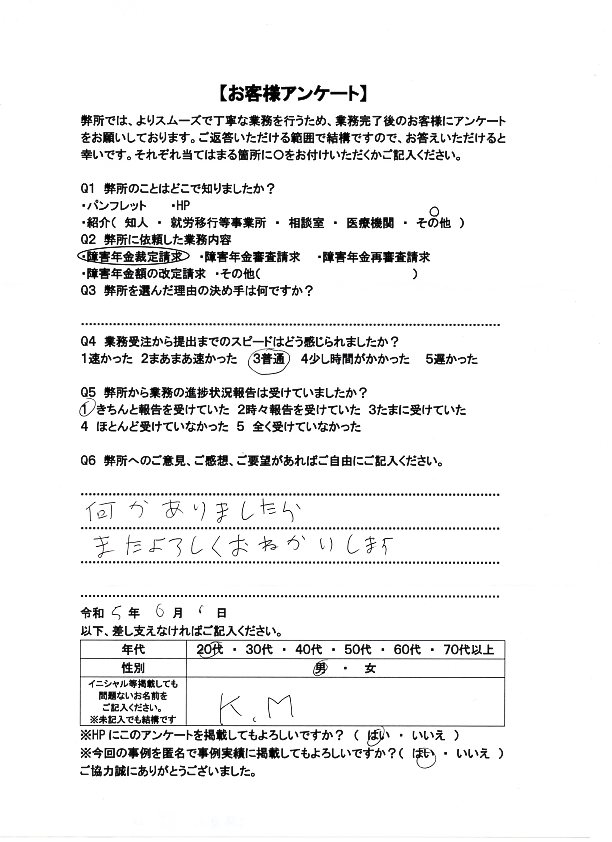 【お客様アンケート】
弊所では、よりスムーズで丁寧な業務を行うため、業務完了後のお客様にアンケート
をお願いしております。ご返答いただける範囲で結構ですので、お答えいただけると
幸いです。それぞれ当てはまる箇所に〇をお付けいただくかご記入ください。
Q1 弊所のことはどこで知りましたか？
・パンフレット ・HP
・紹介（ 知人 ・ 就労移行等事業所 ・ 相談室 ・ 医療機関 ・ その他 ）
Q2 弊所に依頼した業務内容
・障害年金裁定請求 ・障害年金審査請求 ・障害年金再審査請求
・障害年金額の改定請求 ・その他（ ）
Q3 弊所を選んだ理由の決め手は何ですか？
Q4 業務受注から提出までのスピードはどう感じられましたか？
1速かった 2まあまあ速かった 3普通 4少し時間がかかった 5遅かった
Q5 弊所から業務の進捗状況報告は受けていましたか？
1きちんと報告を受けていた 2時々報告を受けていた 3たまに受けていた
4 ほとんど受けていなかった 5 全く受けていなかった
Q6 弊所へのご意見、ご感想、ご要望があればご自由にご記入ください。
何かありましたら
またよろしくおねがいします
令和 5 年 6 月 日
以下、差し支えなければご記入ください。
年代 20代 ・ 30代 ・ 40代 ・ 50代 ・ 60代 ・ 70代以上
性別 男 ・ 女
イニシャル等掲載しても
問題ないお名前を
ご記入ください。
※未記入でも結構です
K.M
※HPにこのアンケートを掲載してもよろしいですか？ （ はい ・ いいえ ）
※今回の事例を匿名で事例実績に掲載してもよろしいですか？（ はい ・ いいえ ）
ご協力誠にありがとうございました。